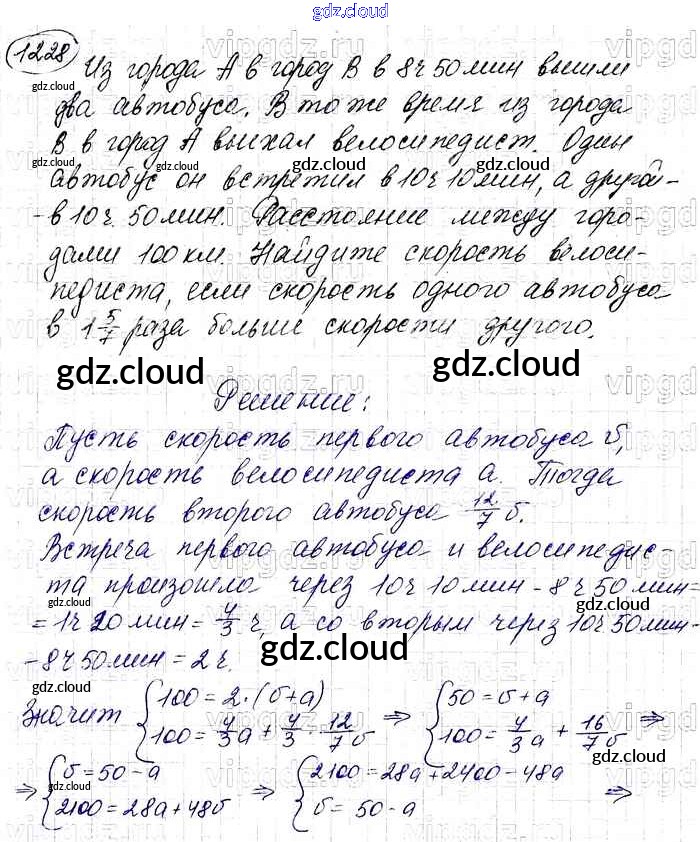 gdz.cloud
1228 Из города А в город В в 8ч 50мин вышли
два автобуса. В то же время из города
В в город А выехал велосипедист. Один
автобус он встретил в 10ч 10мин, а другой -
- в 10ч. 50мин. Расстояние между горо-
дами 100км. Найдите скорость велоси-
педиста, если скорость одного автобуса
в 1 5/7 раза больше скорости другого.
gdz.cloud gdz.cloud
Решение:
Пусть скорость первого автобуса б,
а скорость велосипедиста а. Тогда
скорость второго автобуса 12/7 б.
Встреча первого автобуса и велосипедис-
та произошла через 10ч 10мин - 8ч 50мин =
= 1ч 20мин = 4/3 ч, а со вторым через 10ч 50мин -
- 8ч 50мин = 2ч.
gdz.cloud
Значит { 100 = 2·(б+а) ⇒ { 50 = б+а ⇒
100 = 4/3 а + 4/3 · 12/7 б 100 = 4/3 а + 16/7 б
⇒ { б = 50 - а ⇒ { 2100 = 28а + 2400 - 48а ⇒
2100 = 28а + 48б б = 50 - а